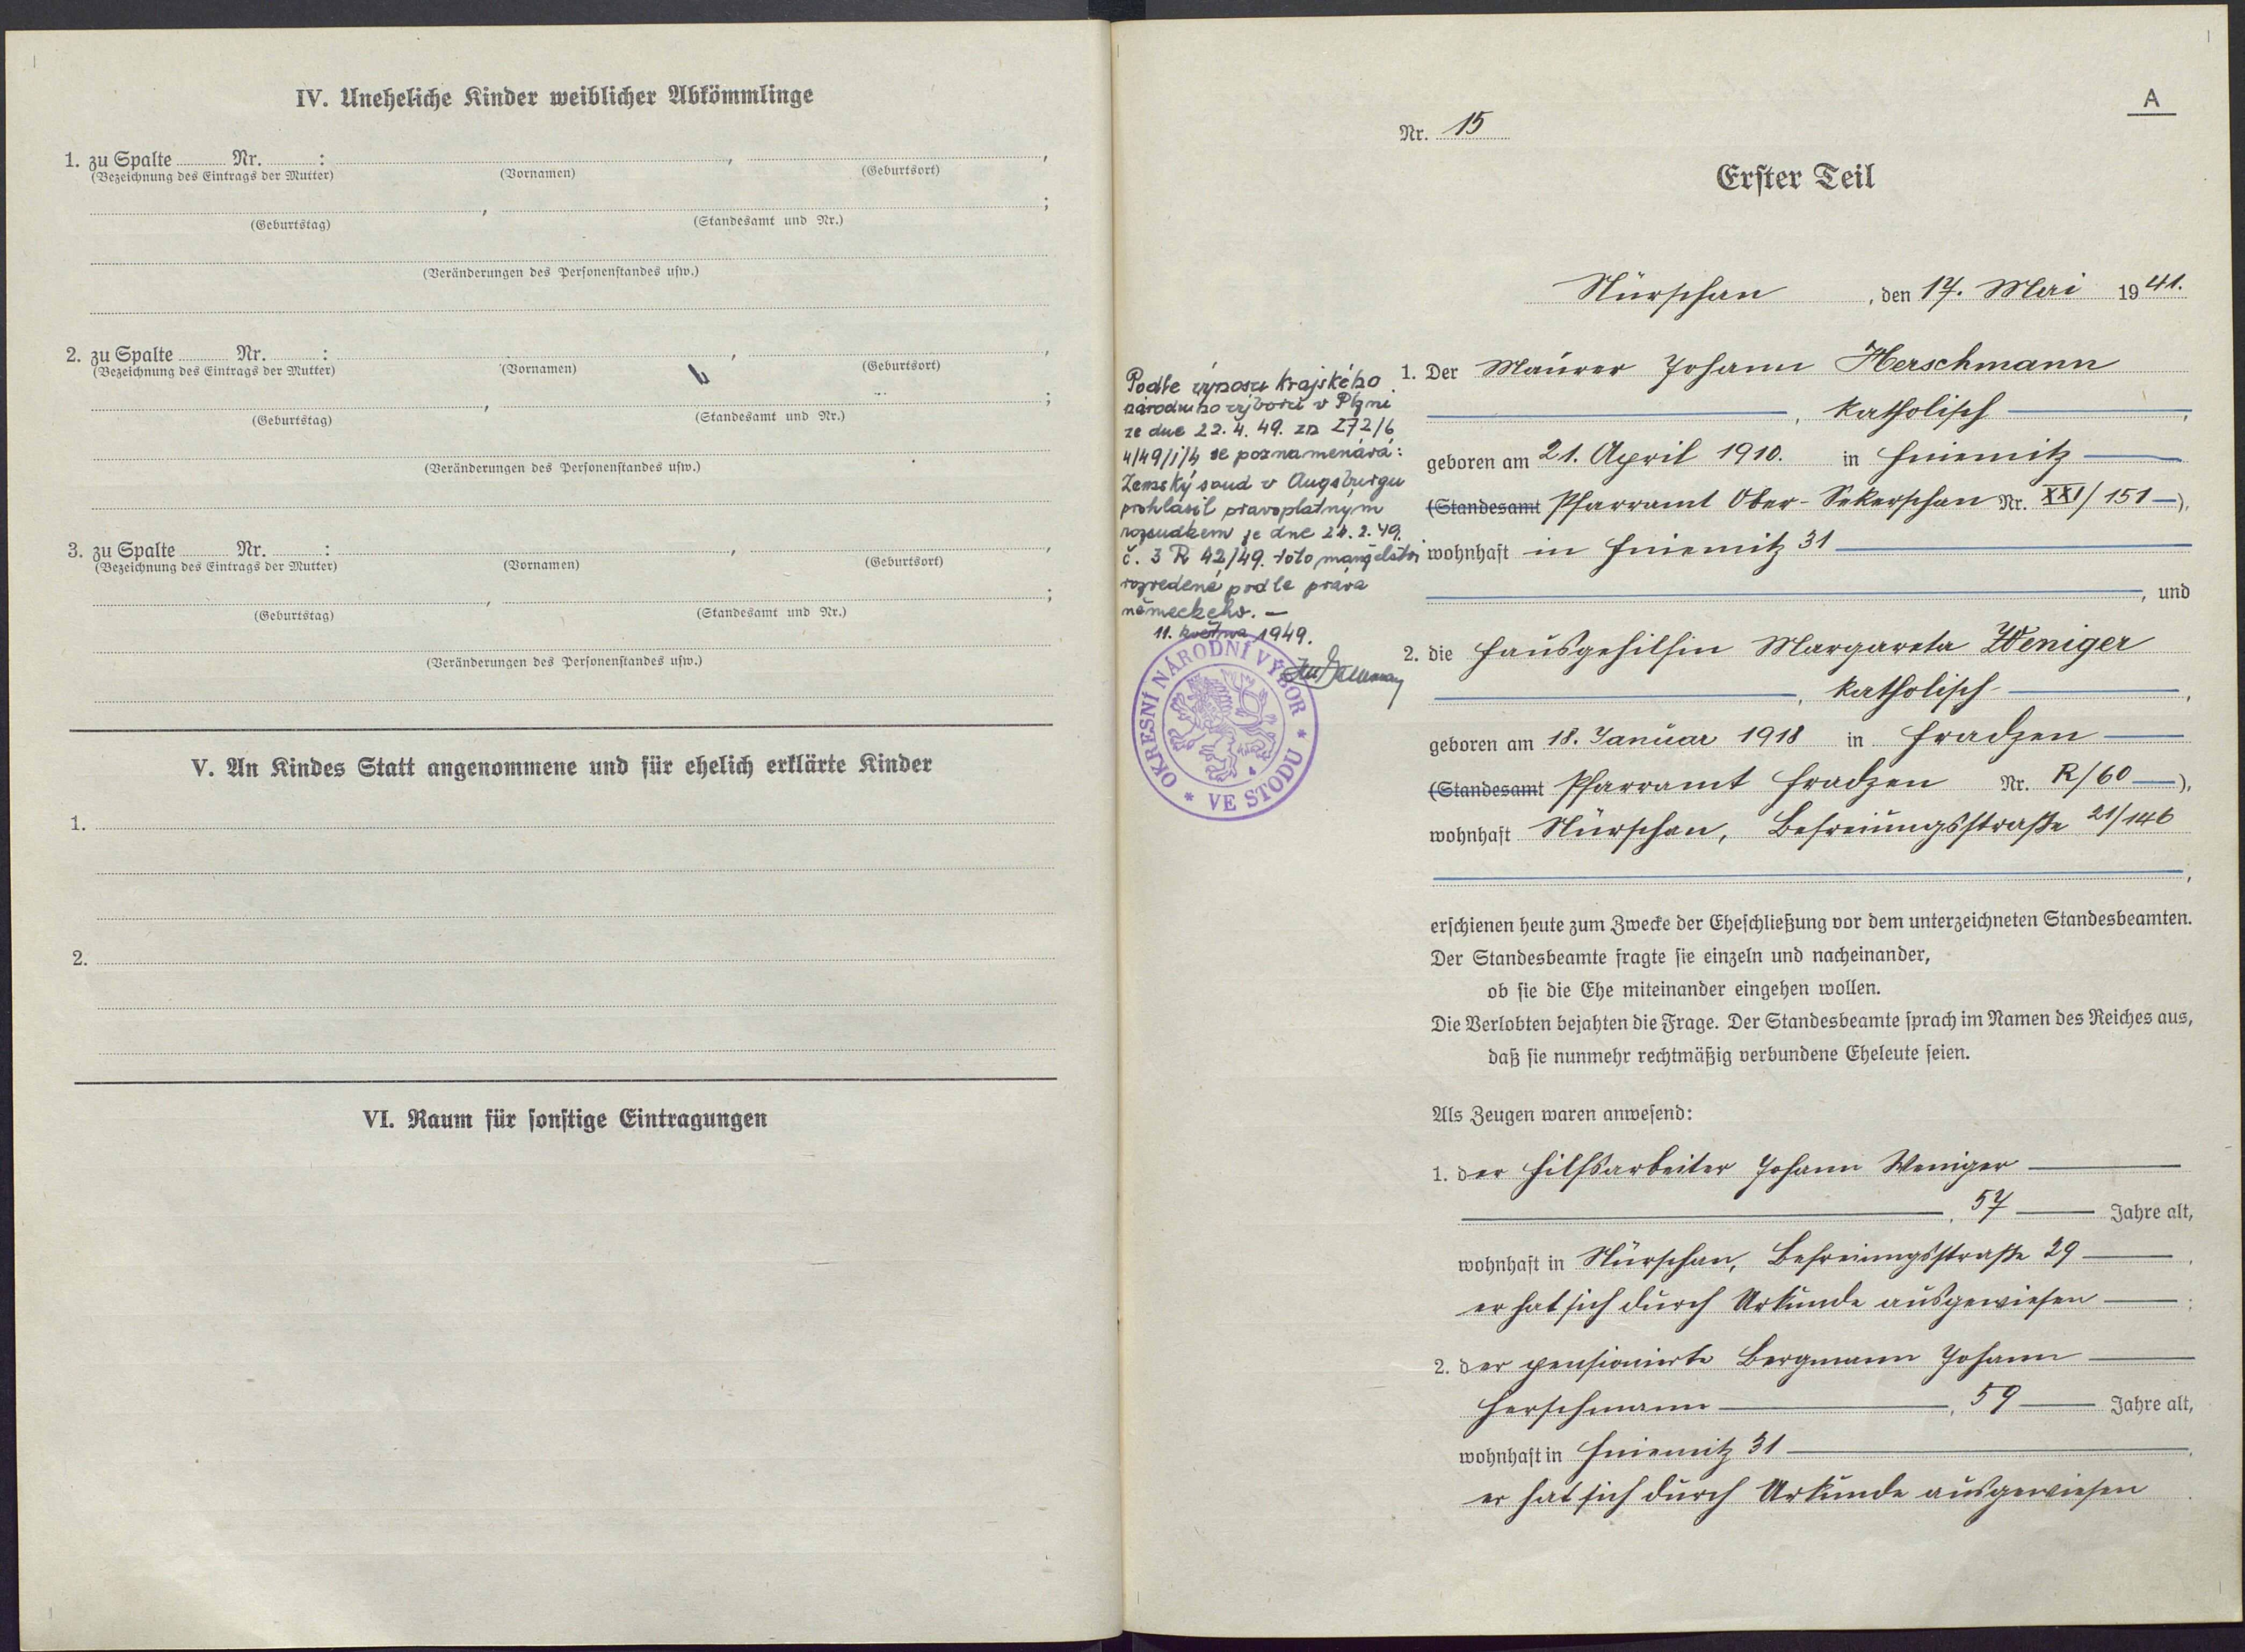 IV. Uneheliche Kinder weiblicher Abkömmlinge
1. zu Spalte Nr. : , ,
(Bezeichnung des Eintrags der Mutter) (Vornamen) (Geburtsort)
, ;
(Geburtstag) (Standesamt und Nr.)
(Veränderungen des Personenstandes usw.)
2. zu Spalte Nr. : , ,
(Bezeichnung des Eintrags der Mutter) (Vornamen) (Geburtsort)
, ;
(Geburtstag) (Standesamt und Nr.)
(Veränderungen des Personenstandes usw.)
3. zu Spalte Nr. : , ,
(Bezeichnung des Eintrags der Mutter) (Vornamen) (Geburtsort)
, ;
(Geburtstag) (Standesamt und Nr.)
(Veränderungen des Personenstandes usw.)
V. An Kindes Statt angenommene und für ehelich erklärte Kinder
1.
2.
VI. Raum für sonstige Eintragungen
A
Nr. 15
Erster Teil
Nürschan, den 17. Mai 1941.
Podle výnosu krajského
národního výboru v Plzni
ze dne 22.4.49. zn 272/6
4/49/i/h se poznamenává:
Zemský soud v Augsburgu
prohlásil pravoplatným
rozsudkem ze dne 24.2.49.
č. 3 R 42/49. toto manželství
rozvedené podle práva
německého. —
11. května 1949.
OKRESNÍ NÁRODNÍ VÝBOR * VE STODU *
1. Der Maurer Johann Herschmann
, katholisch ,
geboren am 21. April 1910. in Hniemitz
(Standesamt Pfarramt Ober-Sekerschan Nr. XXI/151 ),
wohnhaft in Hniemitz 31
, und
2. die Hausgehilfin Margareta Weniger
, katholisch ,
geboren am 18. Januar 1918 in Hradzen
(Standesamt Pfarramt Hradzen Nr. R/60 ),
wohnhaft Nürschan, Befreiungsstraße 21/146
,
erschienen heute zum Zwecke der Eheschließung vor dem unterzeichneten Standesbeamten.
Der Standesbeamte fragte sie einzeln und nacheinander,
ob sie die Ehe miteinander eingehen wollen.
Die Verlobten bejahten die Frage. Der Standesbeamte sprach im Namen des Reiches aus,
daß sie nunmehr rechtmäßig verbundene Eheleute seien.
Als Zeugen waren anwesend:
1. der Hilfsarbeiter Johann Weniger
, 57 Jahre alt,
wohnhaft in Nürschan, Befreiungsstraße 29 ,
er hat sich durch Urkunde ausgewiesen ;
2. der pensionierte Bergmann Johann
Herschmann , 59 Jahre alt,
wohnhaft in Hniemitz 31 ,
er hat sich durch Urkunde ausgewiesen .